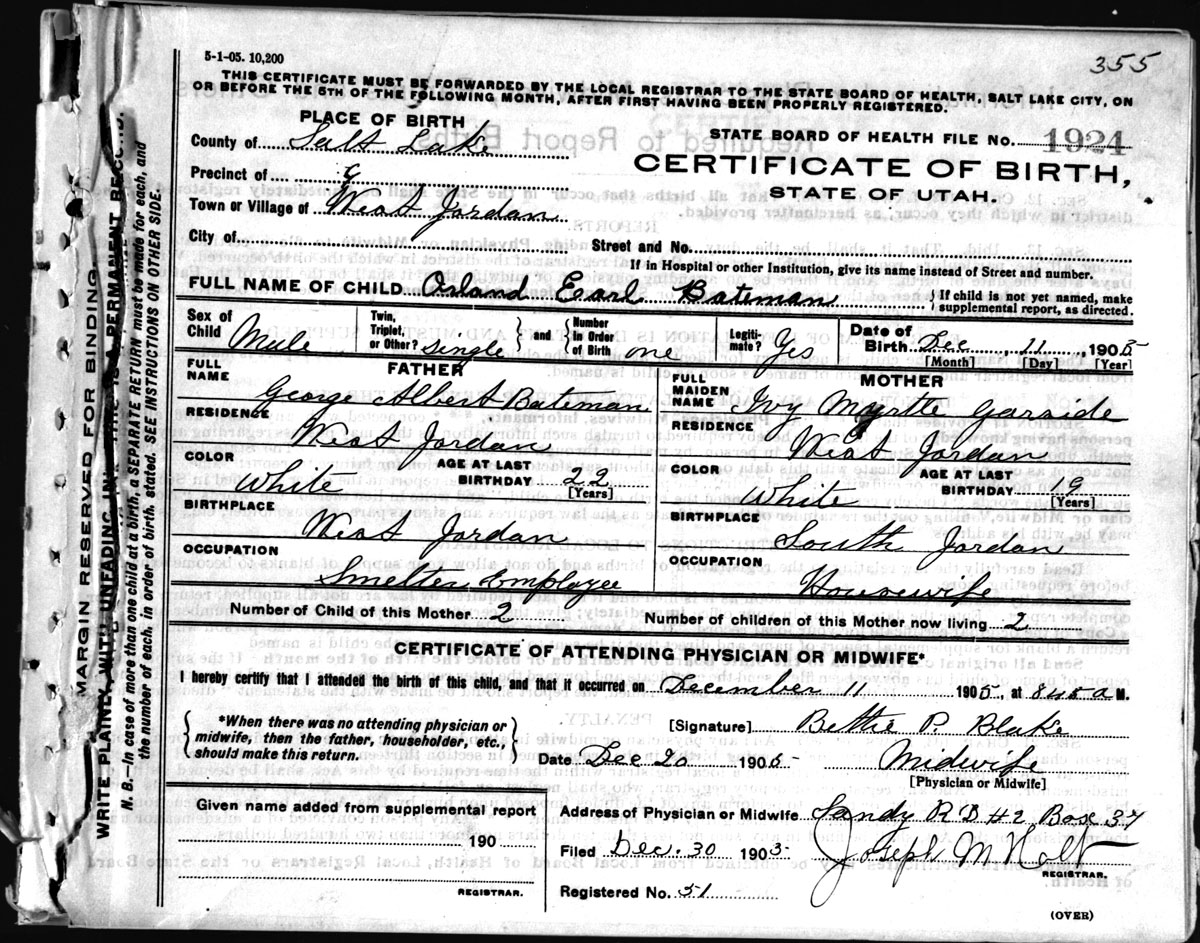 5-1-05. 10,200
355
THIS CERTIFICATE MUST BE FORWARDED BY THE LOCAL REGISTRAR TO THE STATE BOARD OF HEALTH, SALT LAKE CITY, ON
OR BEFORE THE 5TH OF THE FOLLOWING MONTH, AFTER FIRST HAVING BEEN PROPERLY REGISTERED.
PLACE OF BIRTH
STATE BOARD OF HEALTH FILE No. 1924
County of Salt Lake
CERTIFICATE OF BIRTH,
Precinct of
STATE OF UTAH.
Town or Village of West Jordan
City of
Street and No.
If in Hospital or other Institution, give its name instead of Street and number.
FULL NAME OF CHILD Orland Earl Bateman { If child is not yet named, make supplemental report, as directed.
Sex of Child Male Twin, Triplet, or Other? single } and { Number in Order of Birth one Legitimate? Yes Date of Birth Dec 11, 1905
[Month] [Day] [Year]
FATHER
MOTHER
FULL NAME George Albert Bateman
FULL MAIDEN NAME Ivy Myrtle Garside
RESIDENCE West Jordan
RESIDENCE West Jordan
COLOR White AGE AT LAST BIRTHDAY 22 [Years]
COLOR White AGE AT LAST BIRTHDAY 19 [Years]
BIRTHPLACE West Jordan
BIRTHPLACE South Jordan
OCCUPATION Smelter Employee
OCCUPATION Housewife
Number of Child of this Mother 2
Number of children of this Mother now living 2
CERTIFICATE OF ATTENDING PHYSICIAN OR MIDWIFE*
I hereby certify that I attended the birth of this child, and that it occurred on December 11 1905, at 845 a M.
{ *When there was no attending physician or midwife, then the father, householder, etc., should make this return. }
[Signature] Bettie P. Blake
Date Dec 20 1905 Midwife
[Physician or Midwife]
Given name added from supplemental report
190
REGISTRAR.
Address of Physician or Midwife Sandy R D #2 Box 37
Filed Dec. 30 1905 Joseph M Holt
REGISTRAR.
Registered No. 51
(OVER)
MARGIN RESERVED FOR BINDING
WRITE PLAINLY WITH UNFADING INK
THIS IS A PERMANENT RECORD.
N. B.—In case of more than one child at a birth, a SEPARATE RETURN must be made for each, and
the number of each, in order of birth, stated. SEE INSTRUCTIONS ON OTHER SIDE.